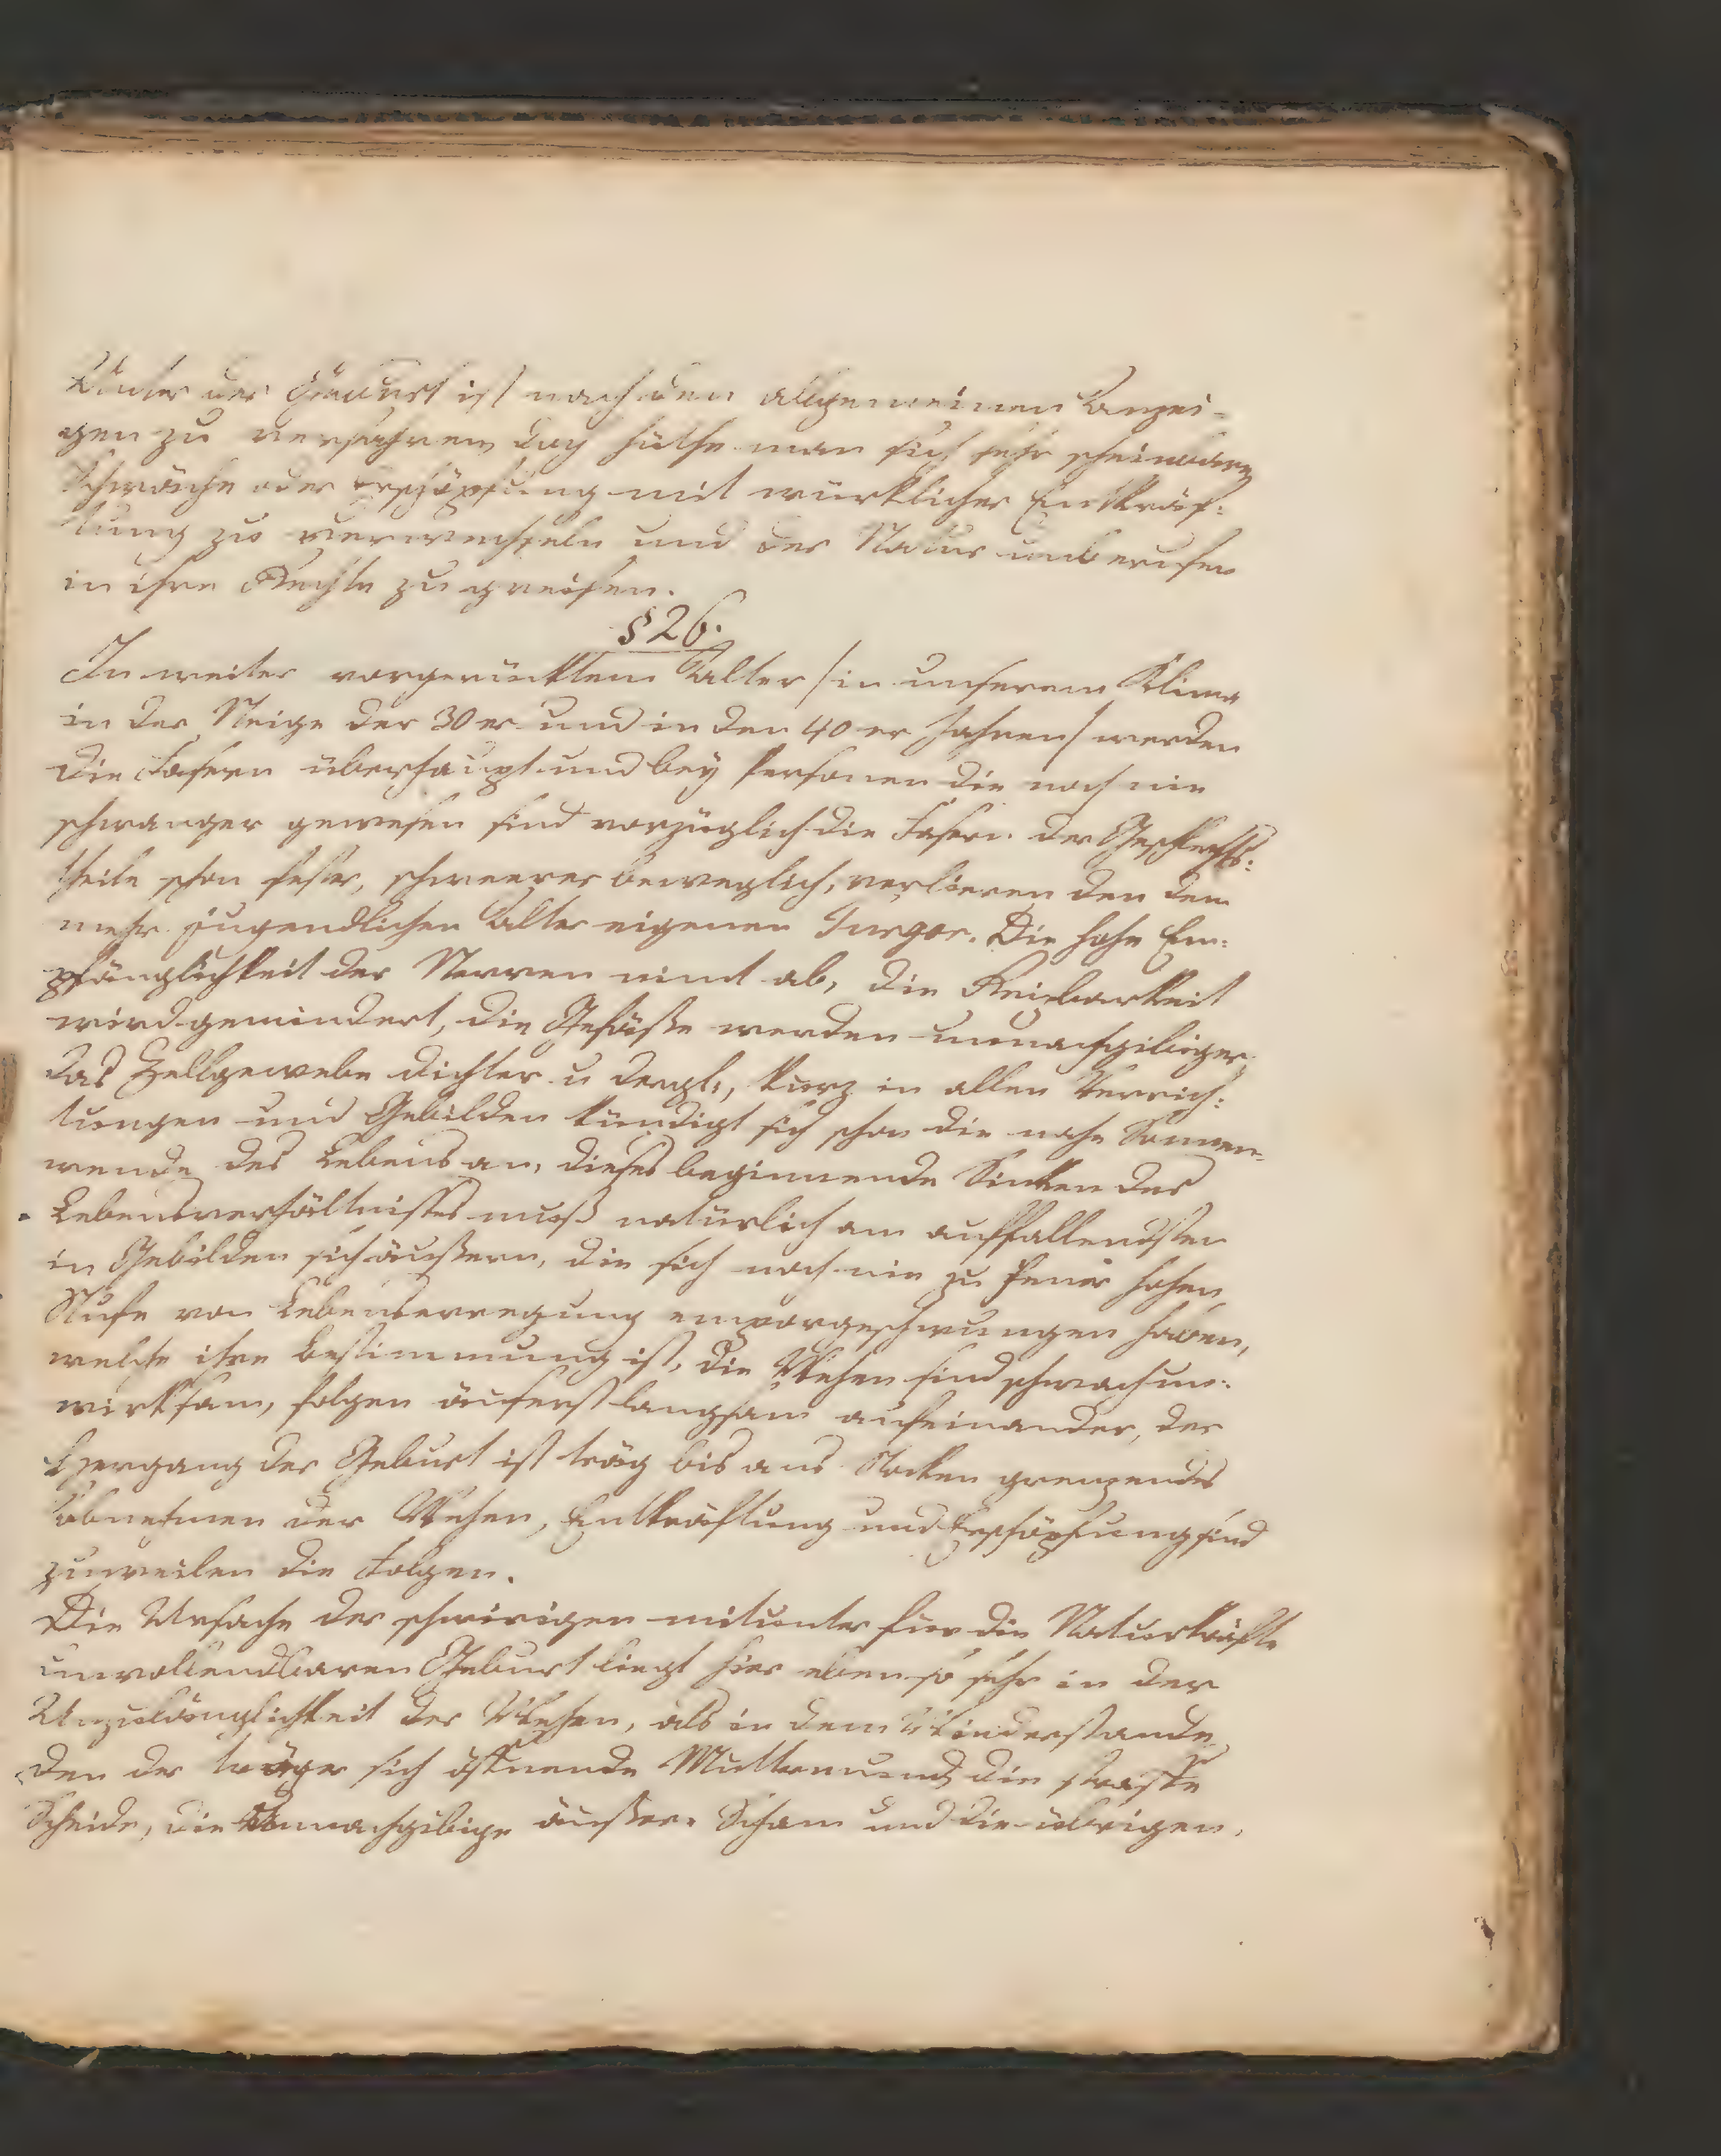 Unter der Geburt ist nach den allgemeinen Anzei-
gen zu verfahren, doch hüthe man sich sehr scheinbare
Schwäche oder Erschöpfung mit würklicher Entkräf:
tung zu verwechseln und der Natur unberufen
in ihre Rechte zu greifen.
§ 26.
In weiter vorgerücktem Alter /in unserem Klima
in der Neige der 30er und in den 40er Jahren/ werden
die Fasern überhaupt und bey Personen die noch nie
schwanger gewesen sind vorzüglich die Fasern der Geschlechts:
theile schon fester, schweerer beweglich, verlieren den dem
mehr jugendlichen Alter eigenen Turgor. Die hohe Em:
pfänglichkeit der Nerven nimt ab, die Reizbarkeit
wird gemindert, die Gefäße werden unnachgibiger,
das Zellgewebe dichter u dergl:, kurz in allen Verrich:
tungen und Gebilden kündigt sich schon die nahe Sonnen-
wende des Lebens an, dieses beginnende Sinken des
Lebensverhältnisses muß natürlich am auffallendsten
in Gebilden sich äußern, die sich noch nie zu jener hohen
Stufe von Lebenserregung emporgeschwungen haben,
welche ihre Bestimmung ist, die Wehen sind schwach un:
wirksam, folgen äuserst langsam aufeinander, der
Hergang der Geburt ist träg bis ans Stocken grenzendes
Abnehmen der Wehen, Entkräftung und Erschöpfung sind
zuweilen die Folgen.
Die Ursache der schwirigen mitunter für die Naturkräfte
unvollendbaren Geburt liegt hier eben so sehr in der
Unzulänglichkeit der Wehen, als in dem Wiederstande,
den der träger sich öffnende Muttermund, die straffe
Scheide, die unnachgibige äußere Scham und die übrigen